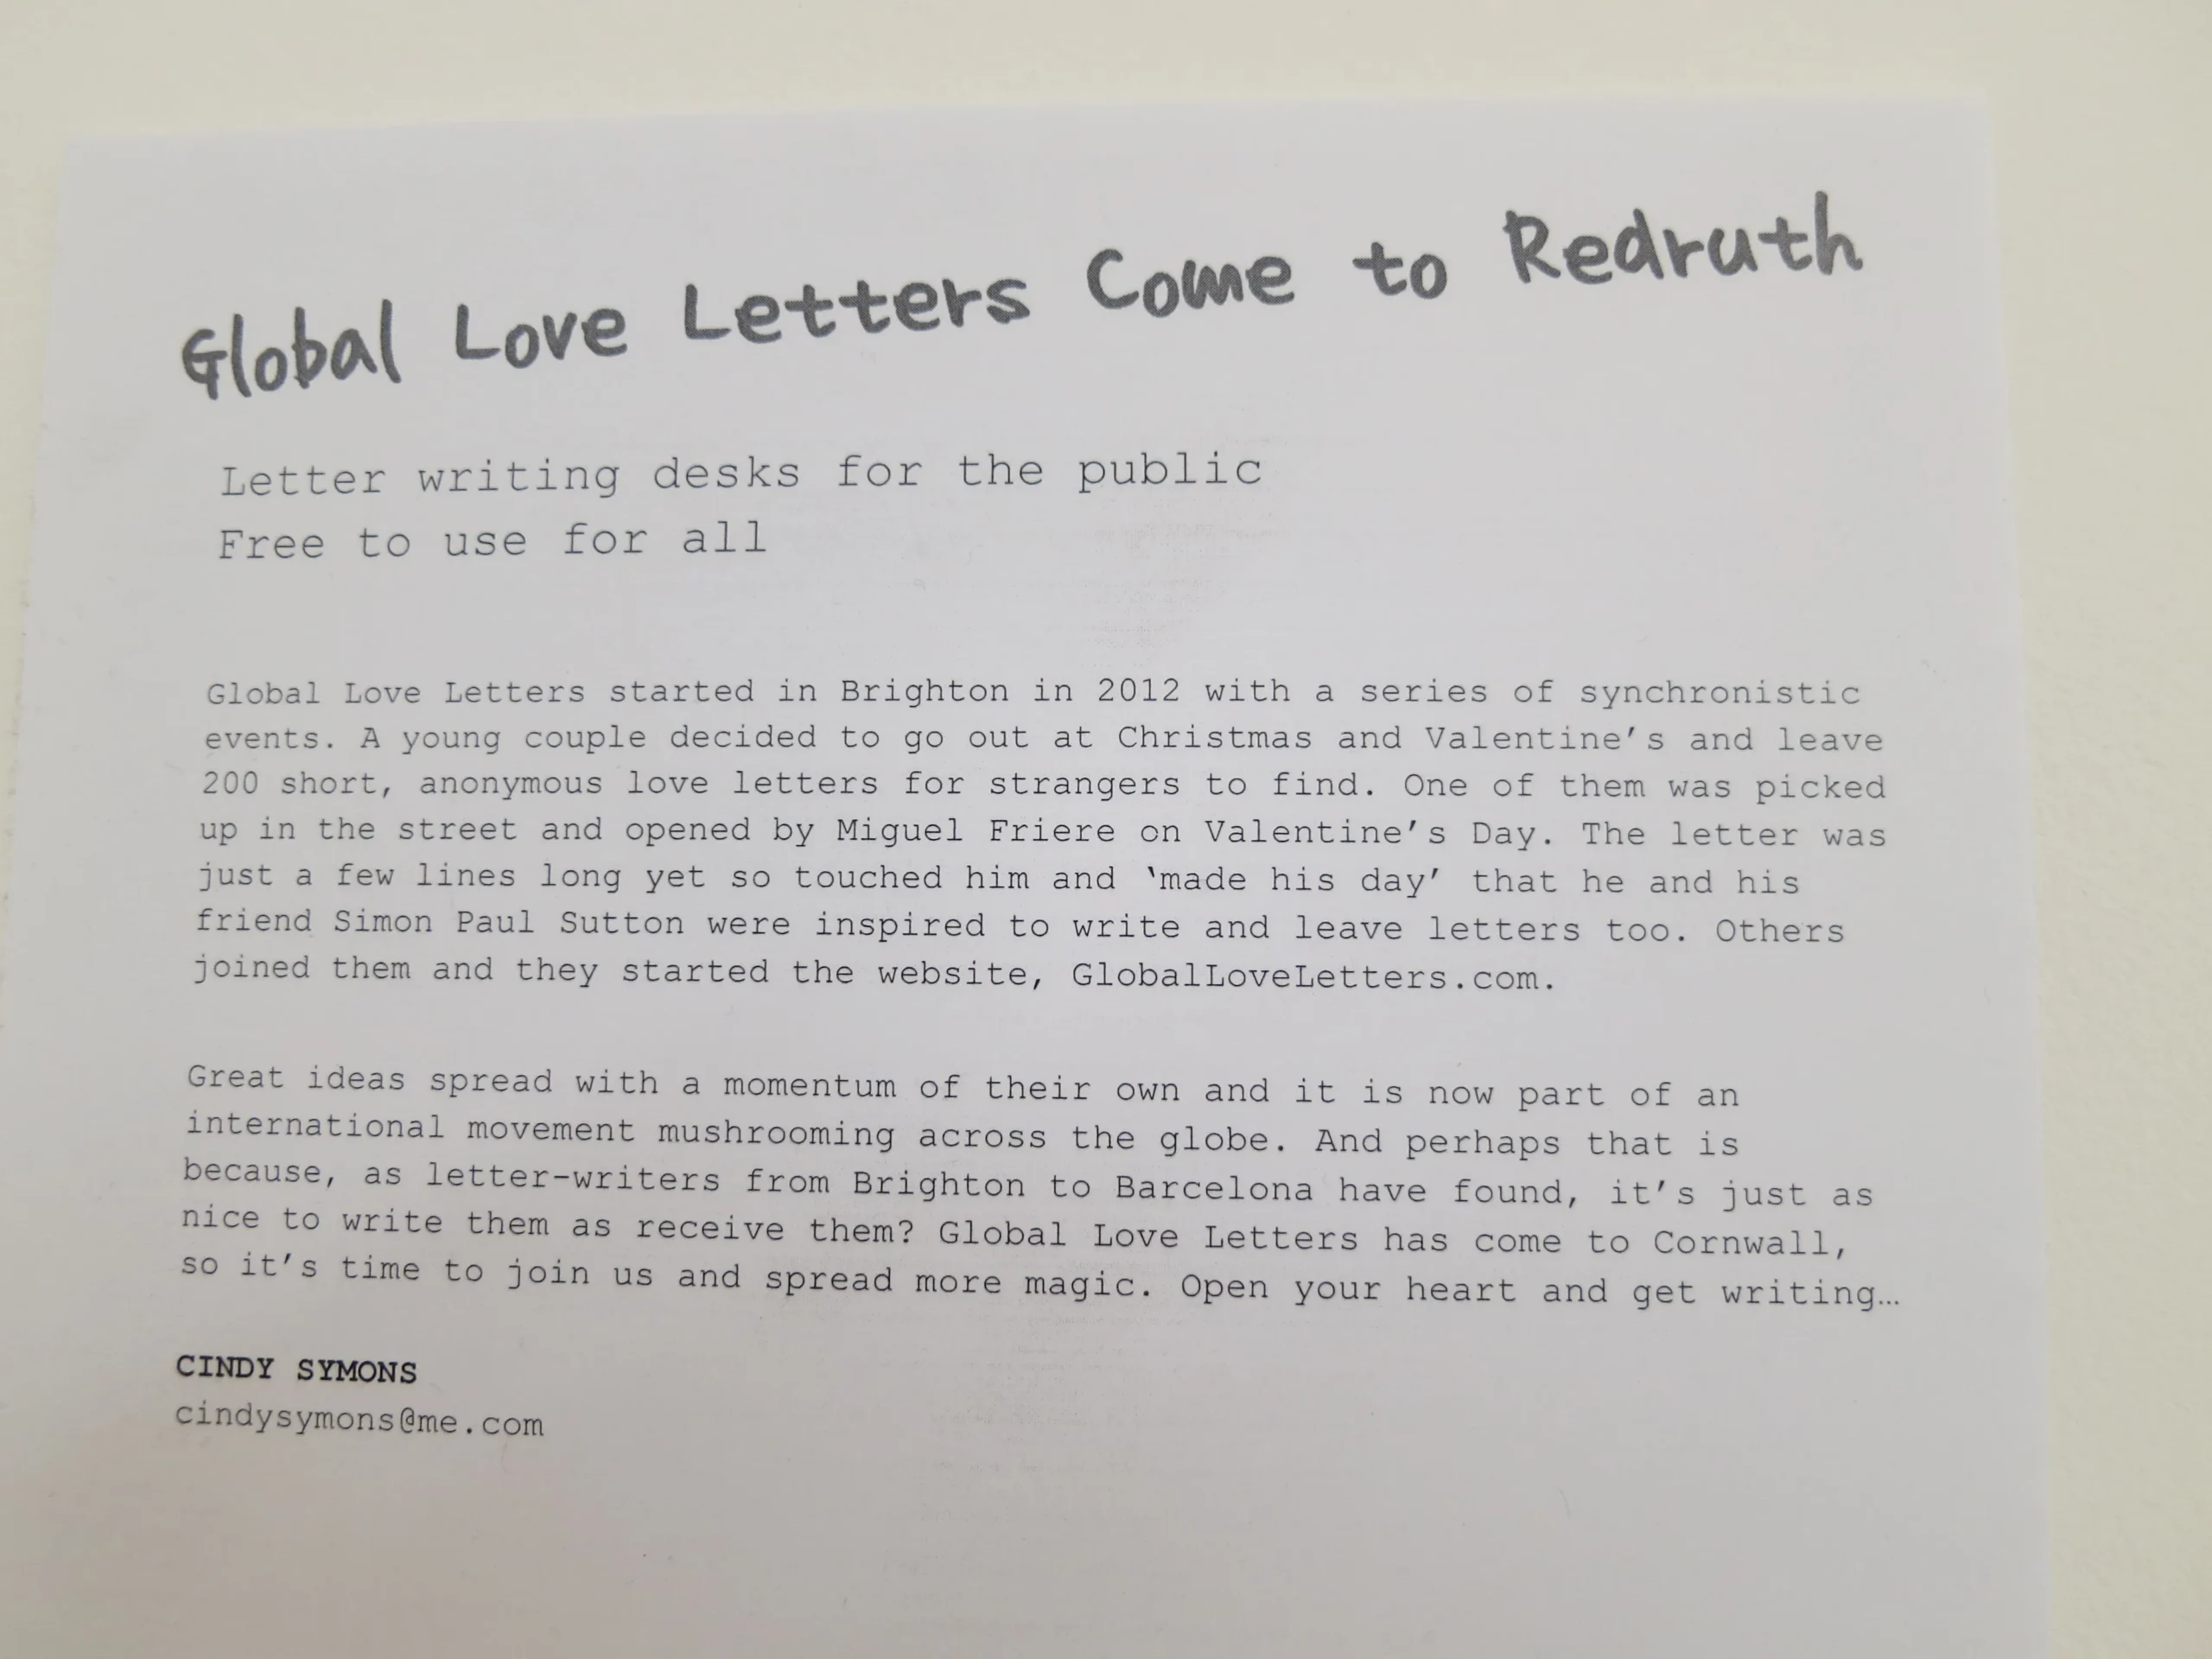 Global Love Letters Come to Redruth
Letter writing desks for the public
Free to use for all
Global Love Letters started in Brighton in 2012 with a series of synchronistic
events. A young couple decided to go out at Christmas and Valentine's and leave
200 short, anonymous love letters for strangers to find. One of them was picked
up in the street and opened by Miguel Friere on Valentine's Day. The letter was
just a few lines long yet so touched him and ‘made his day’ that he and his
friend Simon Paul Sutton were inspired to write and leave letters too. Others
joined them and they started the website, GlobalLoveLetters.com.
Great ideas spread with a momentum of their own and it is now part of an
international movement mushrooming across the globe. And perhaps that is
because, as letter-writers from Brighton to Barcelona have found, it's just as
nice to write them as receive them? Global Love Letters has come to Cornwall,
so it's time to join us and spread more magic. Open your heart and get writing…
CINDY SYMONS
cindysymons@me.com